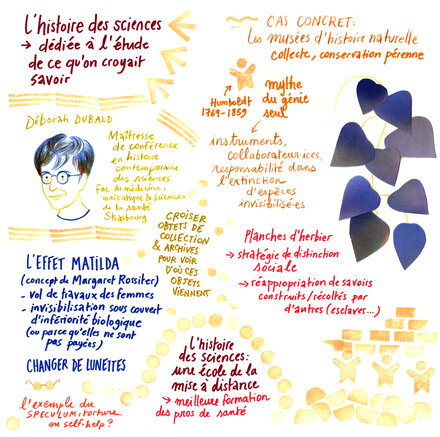 L'histoire des sciences
→ dédiée à l'étude
de ce qu'on croyait
savoir
Déborah DUBALD
Maîtresse
de conférence
en histoire
contemporaine
des sciences
Fac de médecine,
maïeutique & sciences
de la santé
Strasbourg
CROISER
OBJETS DE
COLLECTION
& ARCHIVES
POUR VOIR
D'OÙ CES
OBJETS
VIENNENT
L'EFFET MATILDA
(concept de Margaret Rossiter)
- vol de travaux des femmes
- invisibilisation sous couvert
d'infériorité biologique
(ou parce qu'elles ne sont
pas payées)
CHANGER DE LUNETTES
l'exemple du
SPECULUM: torture
ou self-help?
L'histoire
des sciences:
une école de la
mise à distance
→ meilleure formation
des pros de santé
CAS CONCRET:
Les musées d'histoire naturelle
collecte, conservation pérenne
Humboldt
1769-1859
mythe
du génie
seul
instruments,
collaborateur·ices,
responsabilité dans
l'extinction
d'espèces
invisibilisé·es
Planches d'herbier
→ stratégie de distinction
sociale
→ réappropriation de savoirs
construits/récoltés par
d'autres (esclaves...)